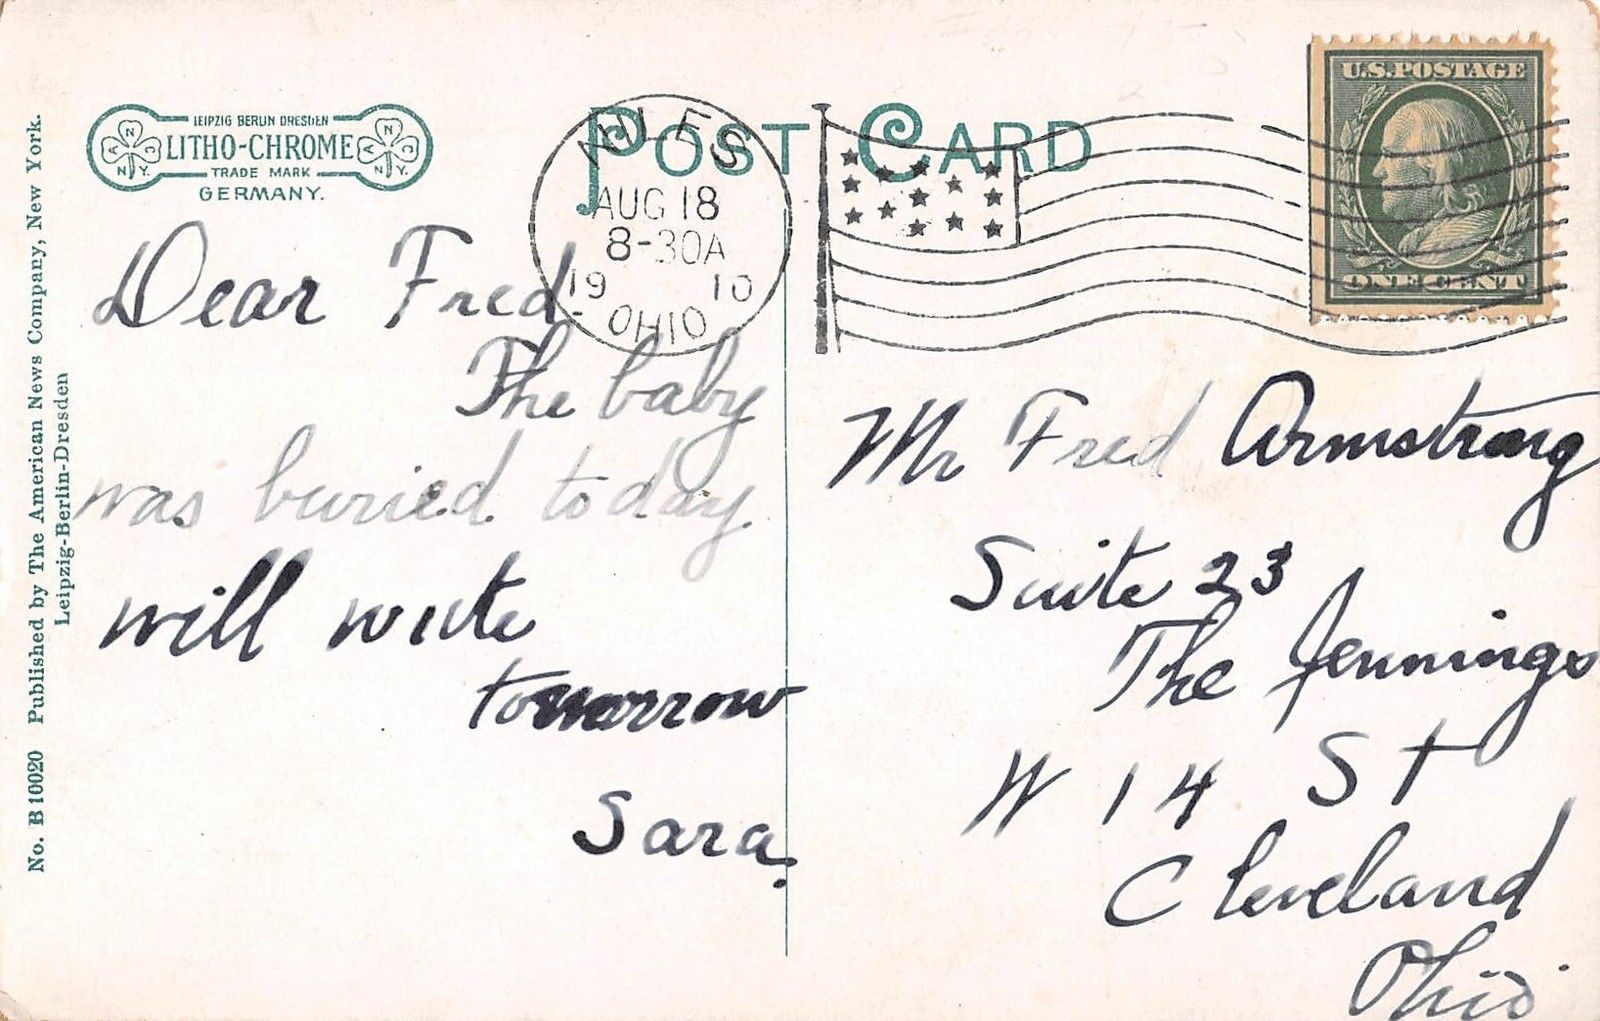 No. B 10020 Published by The American News Company, New York.
Leipzig-Berlin-Dresden
LEIPZIG BERLIN DRESDEN
LITHO-CHROME
TRADE MARK
GERMANY.
A N C N.Y.
A N C N.Y.
POST CARD
NILES
AUG 18
8-30A
19 10
OHIO
U.S. POSTAGE
ONE CENT
Dear Fred.
The baby
was buried today
will write
tomorrow
Sara.
Mr Fred Armstrong
Suite 23
The Jennings
W 14 St
Cleveland
Ohio